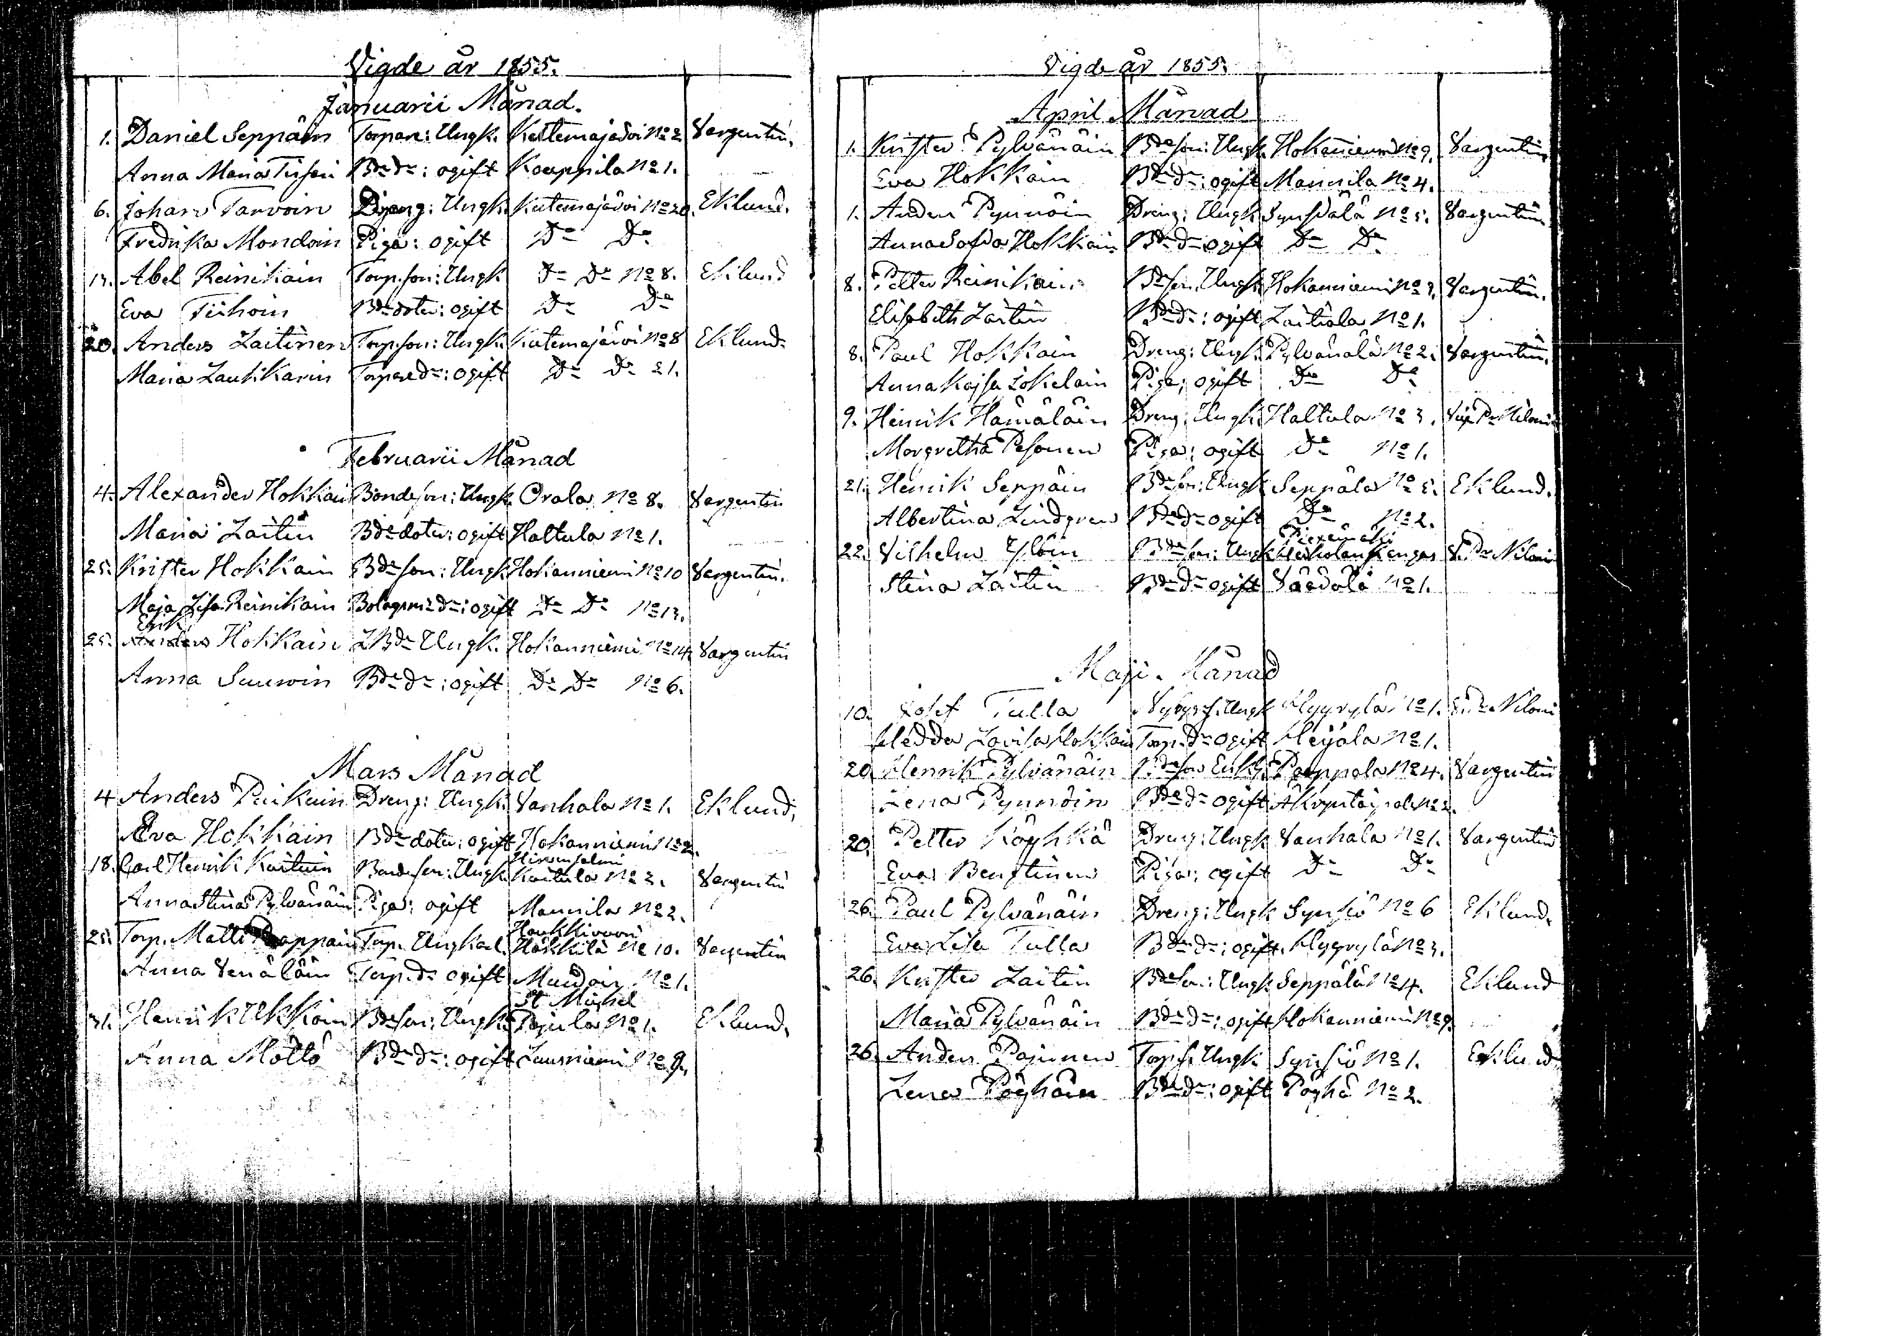 Vigde år 1855.
Januarii Månad.
1. Daniel Seppäin Torpare: Ungk. Kutemajärvi No 2 Vargentin.
Anna Maria Tissari Bde dr: ogift Kouppila No 1.
6. Johan Tarvoin Dräng: Ungk. Kutemajärvi No 20. Eklund.
Fredrika Mondoin Piga: ogift Do Do
13. Abel Reinikain Torp.son: Ungk Do Do No 8. Eklund
Eva Tiihoin Bde doter: ogift Do Do
20. Anders Laitinen Torp.son: Ungk. Kutemajärvi No 8 Eklund.
Maria Laukkarin Torpare dr: ogift Do Do 21.
Februarii Månad
4. Alexander Hokkain Bondeson: Ungk Orala No 8. Vargentin
Maria Laitin Bde doter: ogift Haltula No 1.
25. Krister Hokkain Bde son: Ungk Hokanniemi No 10 Vargentin.
Maja Lisa Reinikain Bolagsm: dr: ogift Do Do No 13.
Erik
25. Anders Hokkain LBde Ungk. Hokanniemi No 14. Vargentin
Anna Suurvoin Bde dr: ogift Do Do No 6.
Mars Månad
4 Anders Paikain Dreng: Ungk. Vanhala No 1. Eklund.
Eva Hokkain Bde doter: ogift Hokanniemi No 2.
Hirvensalmi
18. Carl Henrik Kaituin Bondeson: Ungk Kaitula No 2. Vargentin
Anna Stina Pylvänäin Piga: ogift Mannila No 2.
Haukkivuori
25. Torp. Matts Torp. Ungkarl. Häkkilä No 10. Vargentin
Anna Venäläin Torp. dr ogift No 1.
St Michel
31. Henrik Ukkoin Bde son: Ungk. Pajula No 1. Eklund.
Anna Möttö Bde dr: ogift Lausniemi No 9.
Vigde år 1855.
April Månad
1. Krister Pylvänäin Bde son: Ungk. Hokanniemi No 9. Vargentin
Eva Hokkain Bde dr: ogift Mannila No 4.
1. Anders Pynnöin Dreng: Ungk Synsiälä No 5. Vargentin
Anna Sofia Hokkain Bde dr ogift Do Do
8. Petter Reinikain Bde son. Ungk. Hokanniemi No 3. Vargentin.
Elisabeth Laitin Bde dr: ogift Laitiala No 1.
8. Paul Hokkain Dreng: Ungk. Pylvänälä No 2. Vargentin.
Anna Kajsa Lokelain Piga: ogift Do Do
9. Henrik Hämäläin Dreng: Ungk Haltula No 3. Vice Pr Niloni
Margretha Pesonen Piga: ogift Do No 1.
21. Henrik Seppäin Bde son: Ungk Seppälä No 5. Eklund.
Albertina Lindgren Bde dr ogift Do No 2.
Piexemäki
22. Vilhelm Ylöin Bde son: Ungk V. Pr Niloni
Stina Laitin Bde dr ogift Väärälä No 1.
Maji Månad
10. Josef Tulla Nybygs. Ungk Hyyrylä No 1. V. Pr Niloni
Hedda Lovisa Hokkain Torp. dr ogift Heijala No 1.
20. Henrik Pylvänäin Bde son Enkl. Pauppala No 4. Vargentin
Lena Pynnöin Bde dr ogift No 2.
20. Petter Köyhkä Dreng: Ungk Vanhala No 1. Vargentin
Eva Bengtinen Piga: ogift Do Do
26. Paul Pylvänäin Dreng: Ungk Synsiö No 6 Eklund.
Eva Lisa Tulla Bde dr: ogift. Hyyrylä No 3.
26. Krister Laitin Bde son: Ungk Seppälä No 4. Eklund
Maria Pylvänäin Bde dr: ogift Hokanniemi No 9.
26. Anders Pajunen Torp.s. Ungk Synsiö No 1. Eklund
Lena Pöyhöin Bde dr: ogift Pöyhä No 2.